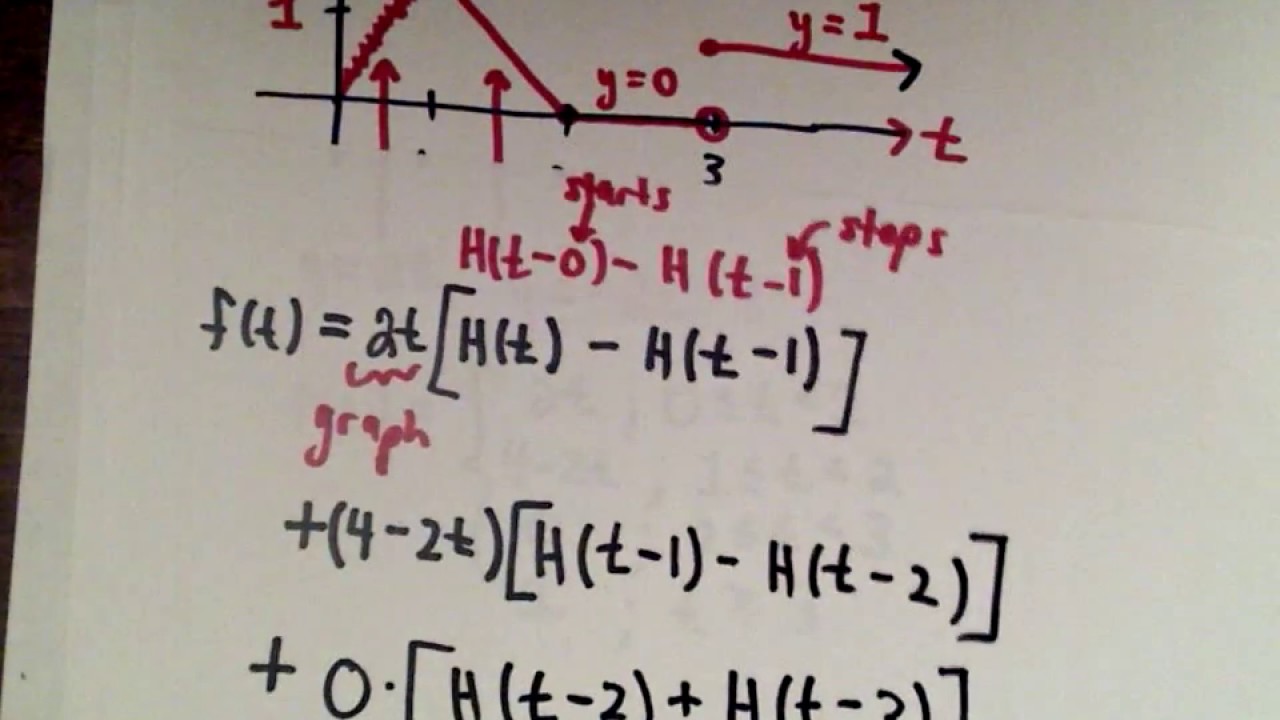 1
y=1
y=0
t
3
starts
H(t-0) - H(t-1) stops
f(t) = 2t[H(t) - H(t-1)]
graph
+(4-2t)[H(t-1) - H(t-2)]
+ 0·[H(t-2) + H(t-3)]